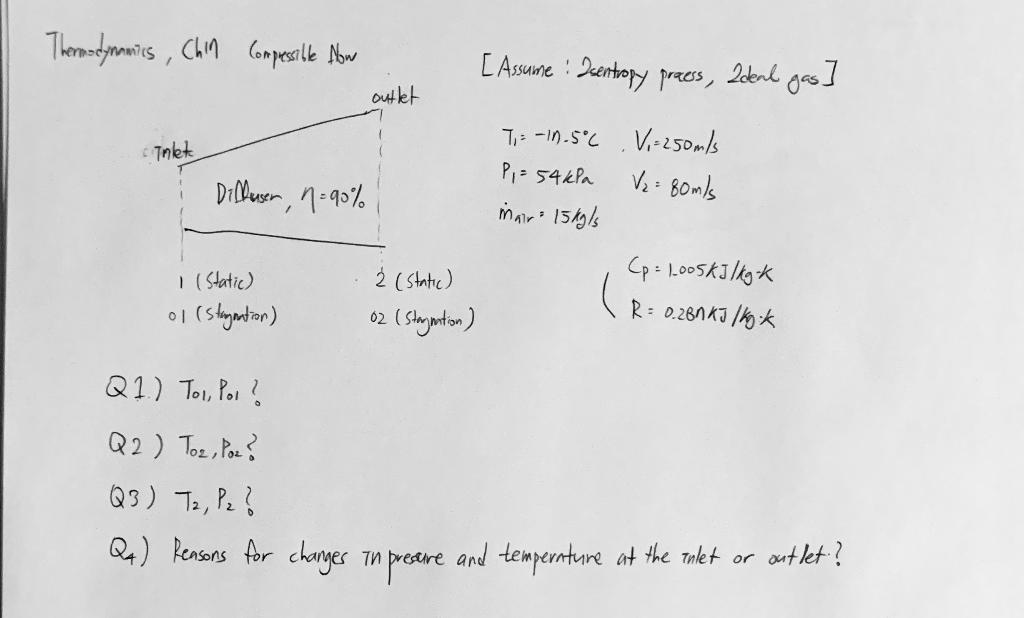 Thermodynamics, Ch17 Compressible flow
[Assume : Isentropy process, Ideal gas]
outlet
inlet
Diffuser, η=90%
T₁= -17.5°C , V₁=250m/s
P₁= 54kPa V₂= 80m/s
ṁair= 15kg/s
1 (static) 2 (static)
01 (stagnation) 02 (stagnation)
Cp= 1.005kJ/kg·K
R= 0.287kJ/kg·K
Q1) T01, P01?
Q2) T02, P02?
Q3) T2, P2?
Q4) Reasons for changes in pressure and temperature at the inlet or outlet?